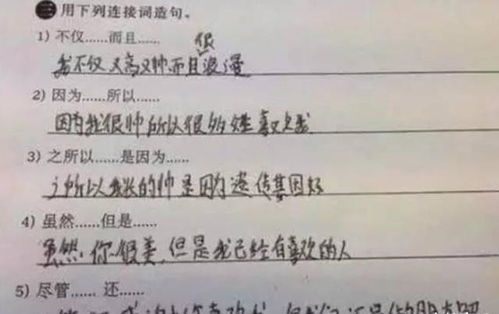 三 用下列连接词造句。
1) 不仅……而且……
很
我不仅又高又帅而且浪漫
2) 因为……所以……
因为我很帅所以很多姓喜欢我
3) 之所以……是因为……
之所以我长的帅是因为遗传基因好
4) 虽然……但是……
虽然你很美,但是我已经有喜欢的人
5) 尽管…… 还……